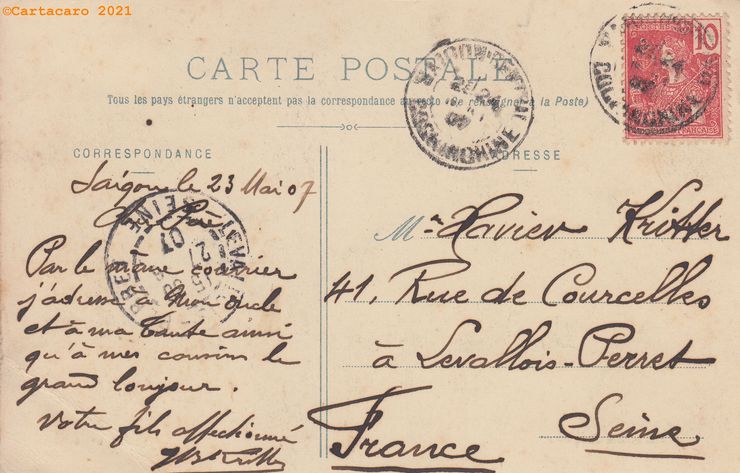 ©Cartacaro 2021
CARTE POSTALE
Tous les pays étrangers n'acceptent pas la correspondance au recto (Se renseigner à la Poste)
CORRESPONDANCE
ADRESSE
10
SAIGON-CENTRAL
24
07
COCHINCHINE
COCHINCHINE
FRANÇAISE
Saigon le 23 Mai 07
Cher Père
Par le même courrier
j'adresse à Mon oncle
et à ma tante ainsi
qu'à mes cousins le
grand bonjour.
Votre fils affectionné
SEINE
07
M. Xavier Kritter
41, Rue de Courcelles
à Levallois-Perret
Seine
France